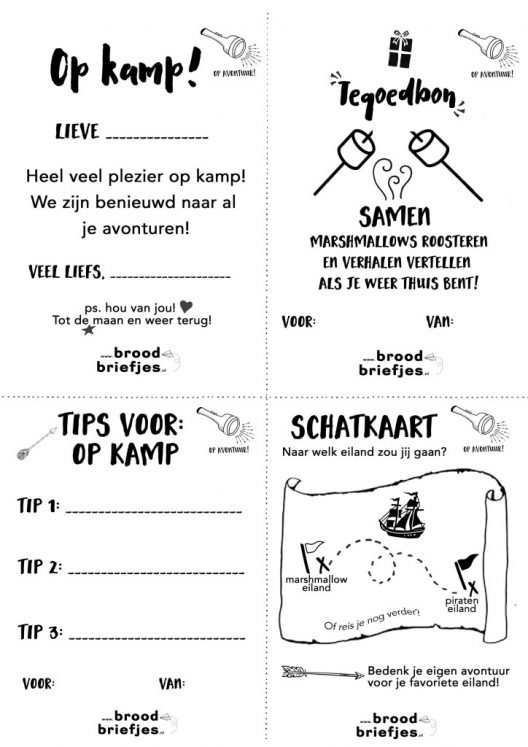 Op kamp!
OP AVONTUUR!
LIEVE _______________
Heel veel plezier op kamp!
We zijn benieuwd naar al
je avonturen!
VEEL LIEFS, _________________
ps. hou van jou!
Tot de maan en weer terug!
www.brood
briefjes.nl
OP AVONTUUR!
Tegoedbon
SAMEN
MARSHMALLOWS ROOSTEREN
EN VERHALEN VERTELLEN
ALS JE WEER THUIS BENT!
VOOR: VAN:
www.brood
briefjes.nl
TIPS VOOR:
OP KAMP
OP AVONTUUR!
TIP 1: _________________________
TIP 2: _________________________
TIP 3: _________________________
VOOR: VAN:
www.brood
briefjes.nl
SCHATKAART
OP AVONTUUR!
Naar welk eiland zou jij gaan?
marshmallow
eiland
piraten
eiland
Of reis je nog verder?
Bedenk je eigen avontuur
voor je favoriete eiland!
www.brood
briefjes.nl